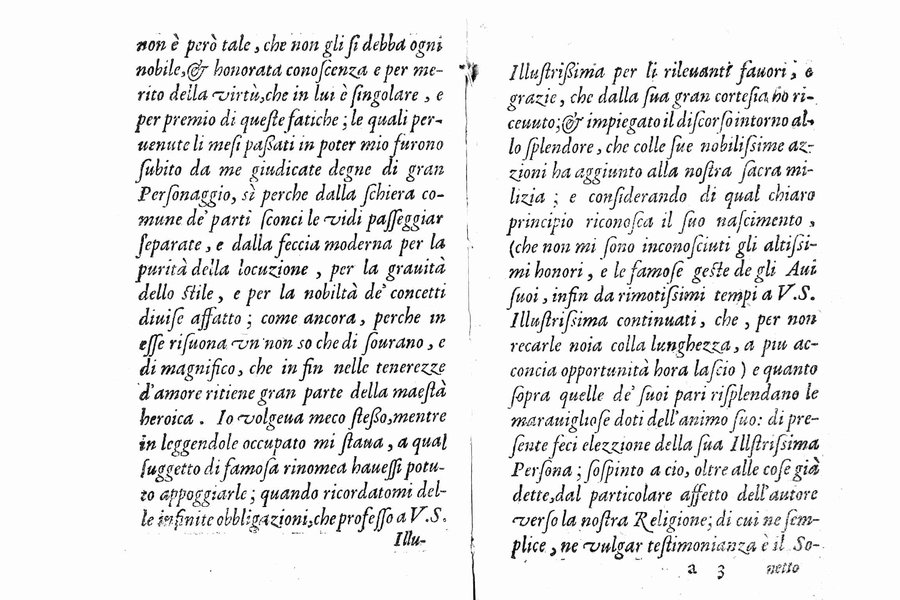 non è però tale, che non gli si debba ogni
nobile, & honorata conoscenza e per me-
rito della virtù, che in lui è singolare, e
per premio di queste fatiche; le quali per-
uenute li mesi passati in poter mio furono
subito da me giudicate degne di gran
Personaggio, sì perche dalla schiera co-
mune de' parti sconci le vidi passeggiar
separate, e dalla feccia moderna per la
purità della locuzione, per la grauità
dello stile, e per la nobiltà de' concetti
diuise affatto; come ancora, perche in
esse risuona vn' non so che di sourano, e
di magnifico, che in fin nelle tenerezze
d'amore ritiene gran parte della maestà
heroica. Io volgeua meco stesso, mentre
in leggendole occupato mi staua, a qual
suggetto di famosa rinomea hauessi potu-
to appoggiarle; quando ricordatomi del-
le infinite obbligazioni, che professo a V.S.
Illu-
Illustrissima per li rileuanti fauori, e
grazie, che dalla sua gran cortesia ho ri-
ceuuto; & impiegato il discorso intorno al-
lo splendore, che colle sue nobilissime az-
zioni ha aggiunto alla nostra sacra mi-
lizia; e considerando di qual chiaro
principio riconosca il suo nascimento,
(che non mi sono inconosciuti gli altissi-
mi honori, e le famose geste de gli Aui
suoi, infin da rimotissimi tempi a V.S.
Illustrissima continuati, che, per non
recarle noia colla lunghezza, a piu ac-
concia opportunità hora lascio) e quanto
sopra quelle de' suoi pari risplendano le
marauigliose doti dell'animo suo: di pre-
sente feci elezzione della sua Illstrissima
Persona; sospinto a cio, oltre alle cose già
dette, dal particolare affetto dell'autore
verso la nostra Religione; di cui ne sem-
plice, ne vulgar testimonianza è il So-
a 3 netto